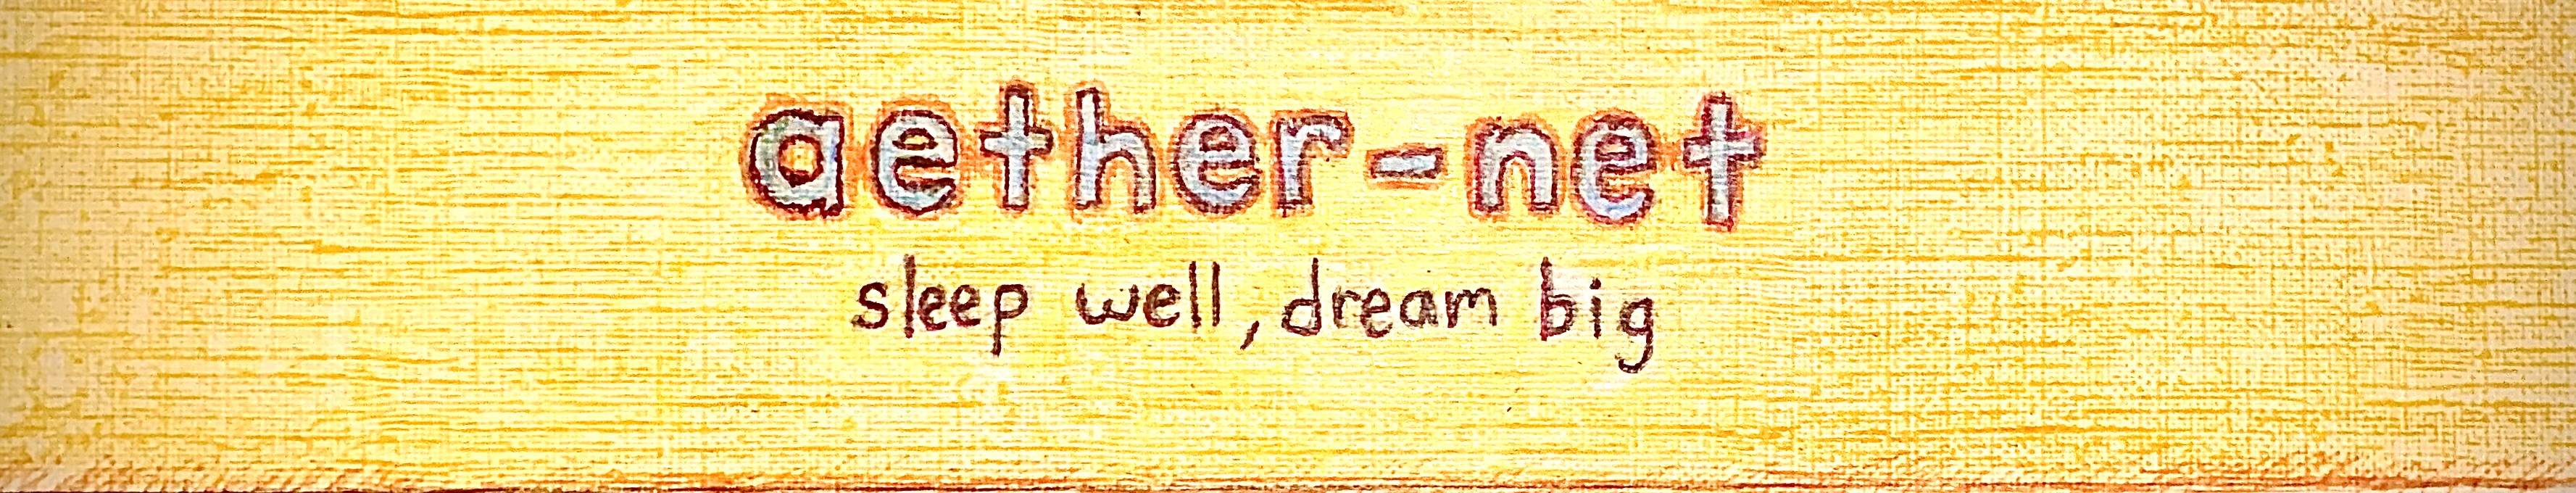 aether-net
sleep well, dream big